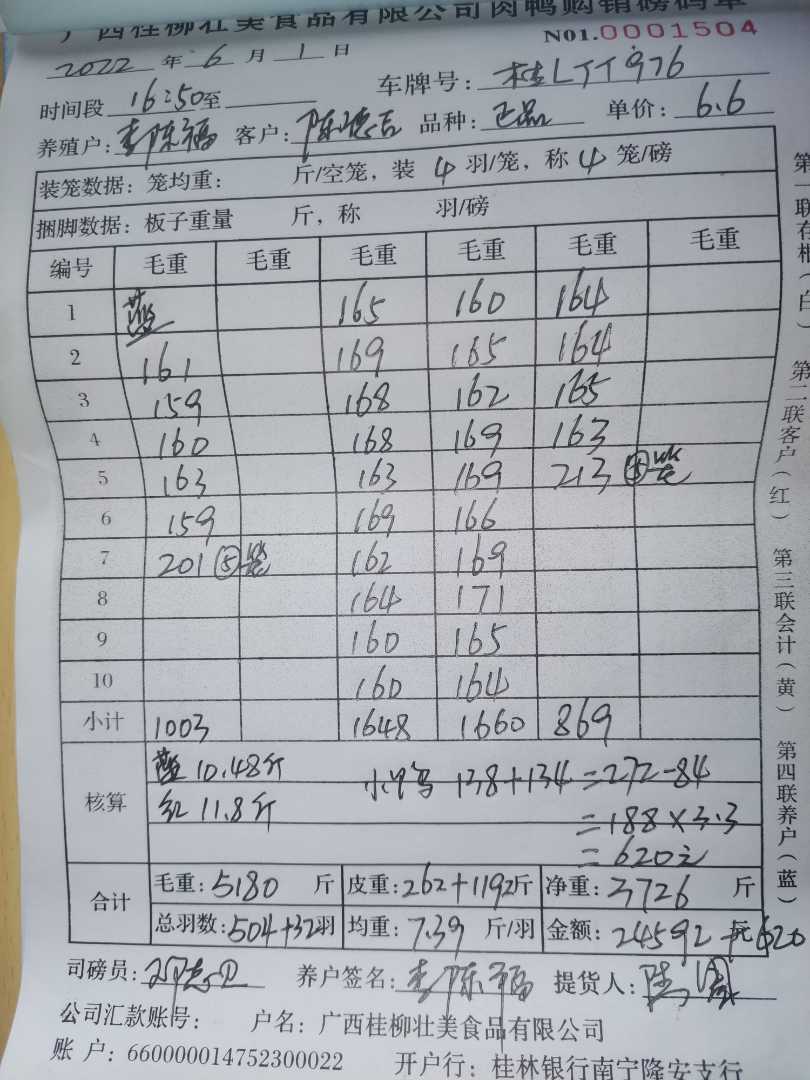 广西桂柳壮美食品有限公司肉鸭购销磅码单
NO1.0001504
2022 年 6 月 1 日
时间段 16:50至 车牌号: 桂LJJ976
养殖户: 李陈福 客户: 品种: 正品 单价: 6.6
装笼数据: 笼均重: 斤/空笼, 装 4 羽/笼, 称 4 笼/磅
捆脚数据: 板子重量 斤, 称 羽/磅
编号 毛重 毛重 毛重 毛重 毛重 毛重
1 蓝 165 160 164
2 161 169 165 164
3 159 168 162 165
4 160 168 169 163
5 163 163 169 213 ⑤笼
6 159 169 166
7 201 ⑤笼 162 169
8 164 171
9 160 165
10 160 164
小计 1003 1648 1660 869
核算
蓝 10.48斤 小鸭 138+134=272-84
红 11.8斤 =188×3.3
=620元
合计
毛重: 5180 斤 皮重: 262+1192斤 净重: 3726 斤
总羽数: 504+32羽 均重: 7.39 斤/羽 金额: 24592 元 620
司磅员: 养户签名: 李陈福 提货人:
公司汇款账号: 户名: 广西桂柳壮美食品有限公司
账 户: 660000014752300022 开户行: 桂林银行南宁隆安支行
第一联存根(白) 第二联客户(红) 第三联会计(黄) 第四联养户(蓝)